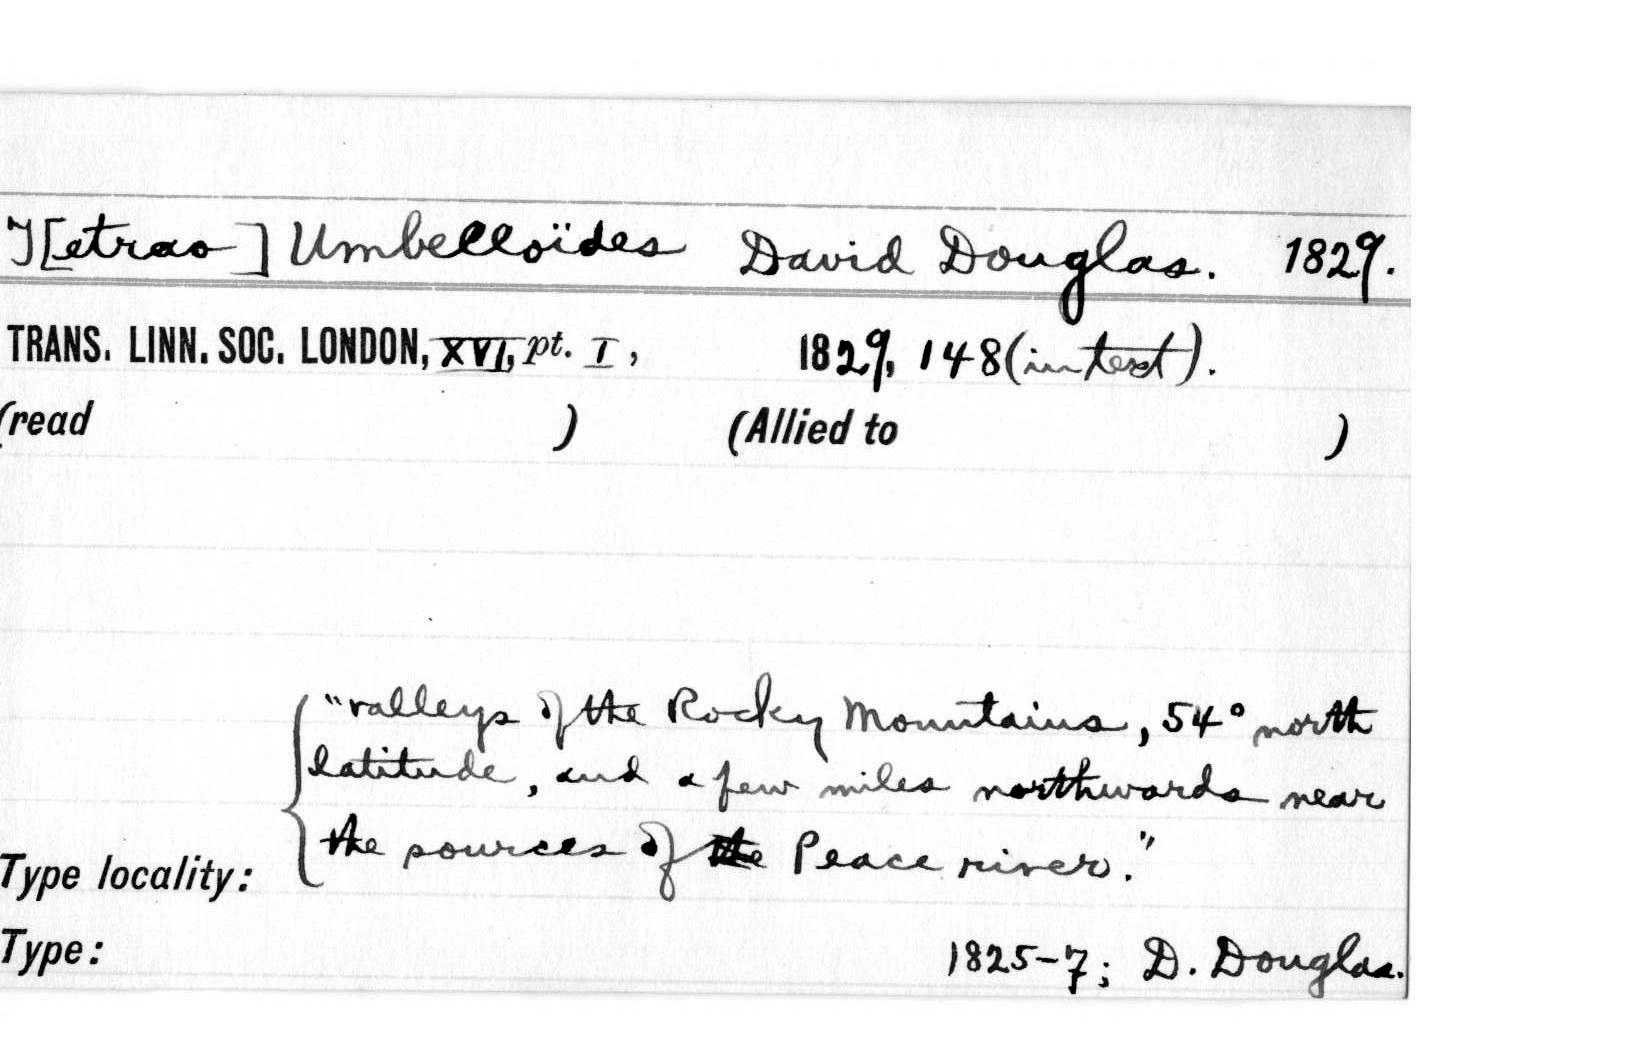 T[etrao] Umbelloïdes David Douglas. 1829.
TRANS. LINN. SOC. LONDON, XVI, pt. I, 1829, 148 (in text).
(read ) (Allied to )
"valleys of the Rocky Mountains, 54° north
latitude, and a few miles northwards near
the sources of the Peace river."
Type locality:
Type: 1825-7; D. Douglas.